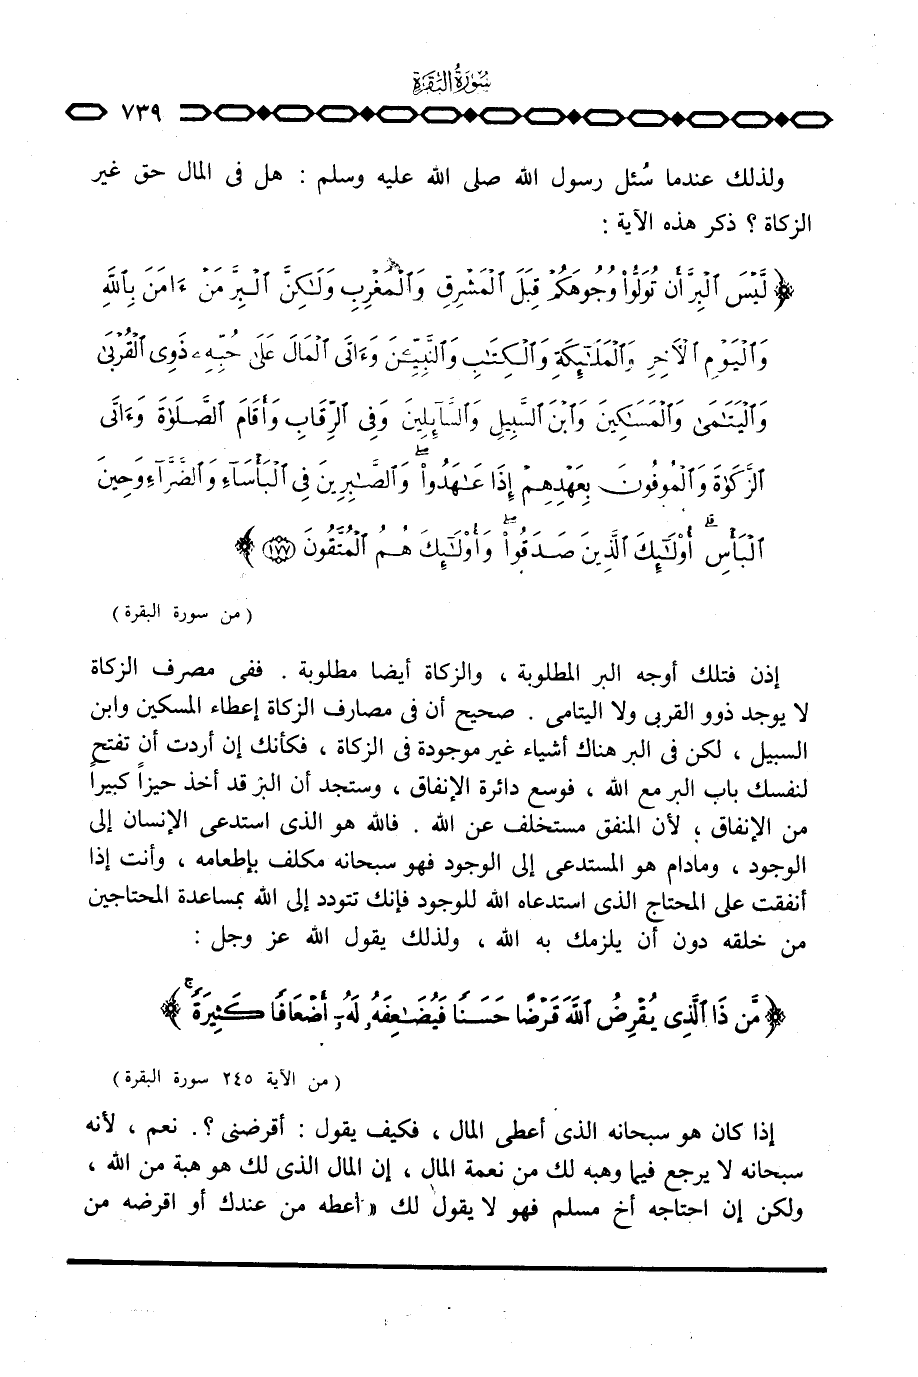 سُورَةُ البَقَرَة
٧٣٩
ولذلك عندما سُئل رسول الله صلى الله عليه وسلم : هل فى المال حق غير
الزكاة ؟ ذكر هذه الآية :
﴿ لَّيْسَ ٱلْبِرَّ أَن تُوَلُّوا۟ وُجُوهَكُمْ قِبَلَ ٱلْمَشْرِقِ وَٱلْمَغْرِبِ وَلَـٰكِنَّ ٱلْبِرَّ مَنْ ءَامَنَ بِٱللَّهِ
وَٱلْيَوْمِ ٱلْـَٔاخِرِ وَٱلْمَلَـٰٓئِكَةِ وَٱلْكِتَـٰبِ وَٱلنَّبِيِّـۧنَ وَءَاتَى ٱلْمَالَ عَلَىٰ حُبِّهِۦ ذَوِى ٱلْقُرْبَىٰ
وَٱلْيَتَـٰمَىٰ وَٱلْمَسَـٰكِينَ وَٱبْنَ ٱلسَّبِيلِ وَٱلسَّآئِلِينَ وَفِى ٱلرِّقَابِ وَأَقَامَ ٱلصَّلَوٰةَ وَءَاتَى
ٱلزَّكَوٰةَ وَٱلْمُوفُونَ بِعَهْدِهِمْ إِذَا عَـٰهَدُوا۟ ۖ وَٱلصَّـٰبِرِينَ فِى ٱلْبَأْسَآءِ وَٱلضَّرَّآءِ وَحِينَ
ٱلْبَأْسِ ۗ أُو۟لَـٰٓئِكَ ٱلَّذِينَ صَدَقُوا۟ ۖ وَأُو۟لَـٰٓئِكَ هُمُ ٱلْمُتَّقُونَ ١٧٧ ﴾
( من سورة البقرة )
إذن فتلك أوجه البر المطلوبة ، والزكاة أيضا مطلوبة . ففى مصرف الزكاة
لا يوجد ذوو القربى ولا اليتامى . صحيح أن فى مصارف الزكاة إعطاء المسكين وابن
السبيل ، لكن فى البر هناك أشياء غير موجودة فى الزكاة ، فكأنك إن أردت أن تفتح
لنفسك باب البر مع الله ، فوسع دائرة الإنفاق ، وستجد أن البر قد أخذ حيزاً كبيراً
من الإنفاق ؛ لأن المنفق مستخلف عن الله . فالله هو الذى استدعى الإنسان إلى
الوجود ، ومادام هو المستدعى إلى الوجود فهو سبحانه مكلف بإطعامه ، وأنت إذا
أنفقت على المحتاج الذى استدعاه الله للوجود فإنك تتودد إلى الله بمساعدة المحتاجين
من خلقه دون أن يلزمك به الله ، ولذلك يقول الله عز وجل :
﴿ مَّن ذَا ٱلَّذِى يُقْرِضُ ٱللَّهَ قَرْضًا حَسَنًا فَيُضَـٰعِفَهُۥ لَهُۥٓ أَضْعَافًا كَثِيرَةً ۚ ﴾
( من الآية ٢٤٥ سورة البقرة )
إذا كان هو سبحانه الذى أعطى المال ، فكيف يقول : أقرضنى ؟. نعم ، لأنه
سبحانه لا يرجع فيما وهبه لك من نعمة المال ، إن المال الذى لك هو هبة من الله ،
ولكن إن احتاجه أخ مسلم فهو لا يقول لك « أعطه من عندك أو اقرضه من